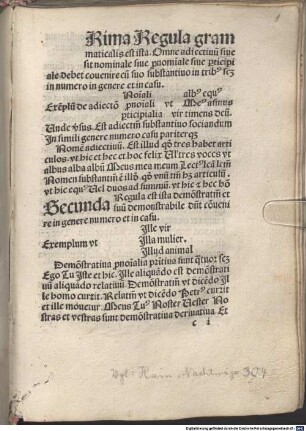 Rima Regula gram
maticalis est ista. Omne adiectiuũ siue
sit nominale siue ꝓnomiale siue ꝑticipi
ale debet cõuenire cũ suo substantiuo in tribꝰ scꝫ
in numero in genere et in casu.
Noĩali albꝰ equꝰ
Exẽplũ de adiectõ ꝓnoĩali vt Meꝰ asinus
ꝑticipialia vir timens deũ.
Unde v̾sus. Est adiectiũ substantiuo sociandum
In simili genere numero casu pariterqꝫ
Nomẽ adiectiuũ. Est illud qđ tres habet arti
culos. vt hic et hec et hoc felix. Ul' tres voces vt
albus alba albũ Meus mea meum
Nomen substantiũ ẽ illđ qđ vnũ tm̃ hꝫ articulũ.
vt hic equꝰ Uel duos ad summũ. vt hic ⁊ hec hõ
Regula est ista demõstratiũ et
Secunda suũ demonstrabile dñt cõueni
re in genere numero et in casu.
Ille vir
Exemplum vt Illa mulier.
Illud animal
Demõstratiua ꝓnoĩalia pritiua sunt q̃tuor scꝫ
Ego Tu Iste et hic. Ille aliquãdo est demõstrati
uũ aliquãdo relatiuũ. Demõstratiũ vt dicẽdo Il
le homo currit. Relatiũ vt dicẽdo Petrꝰ currit
et ille mouetur Meus Tuꝰ Noster Uester No
stras et vestras sunt demõstratiua deriuatiua. Et
c i
Vgl. Hain-Nachträge 304